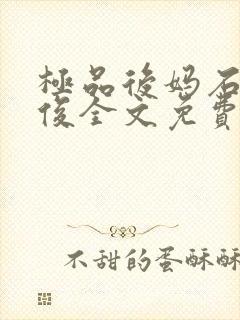 極品後妈石
俊全文免費
不甜的蛋酥酥